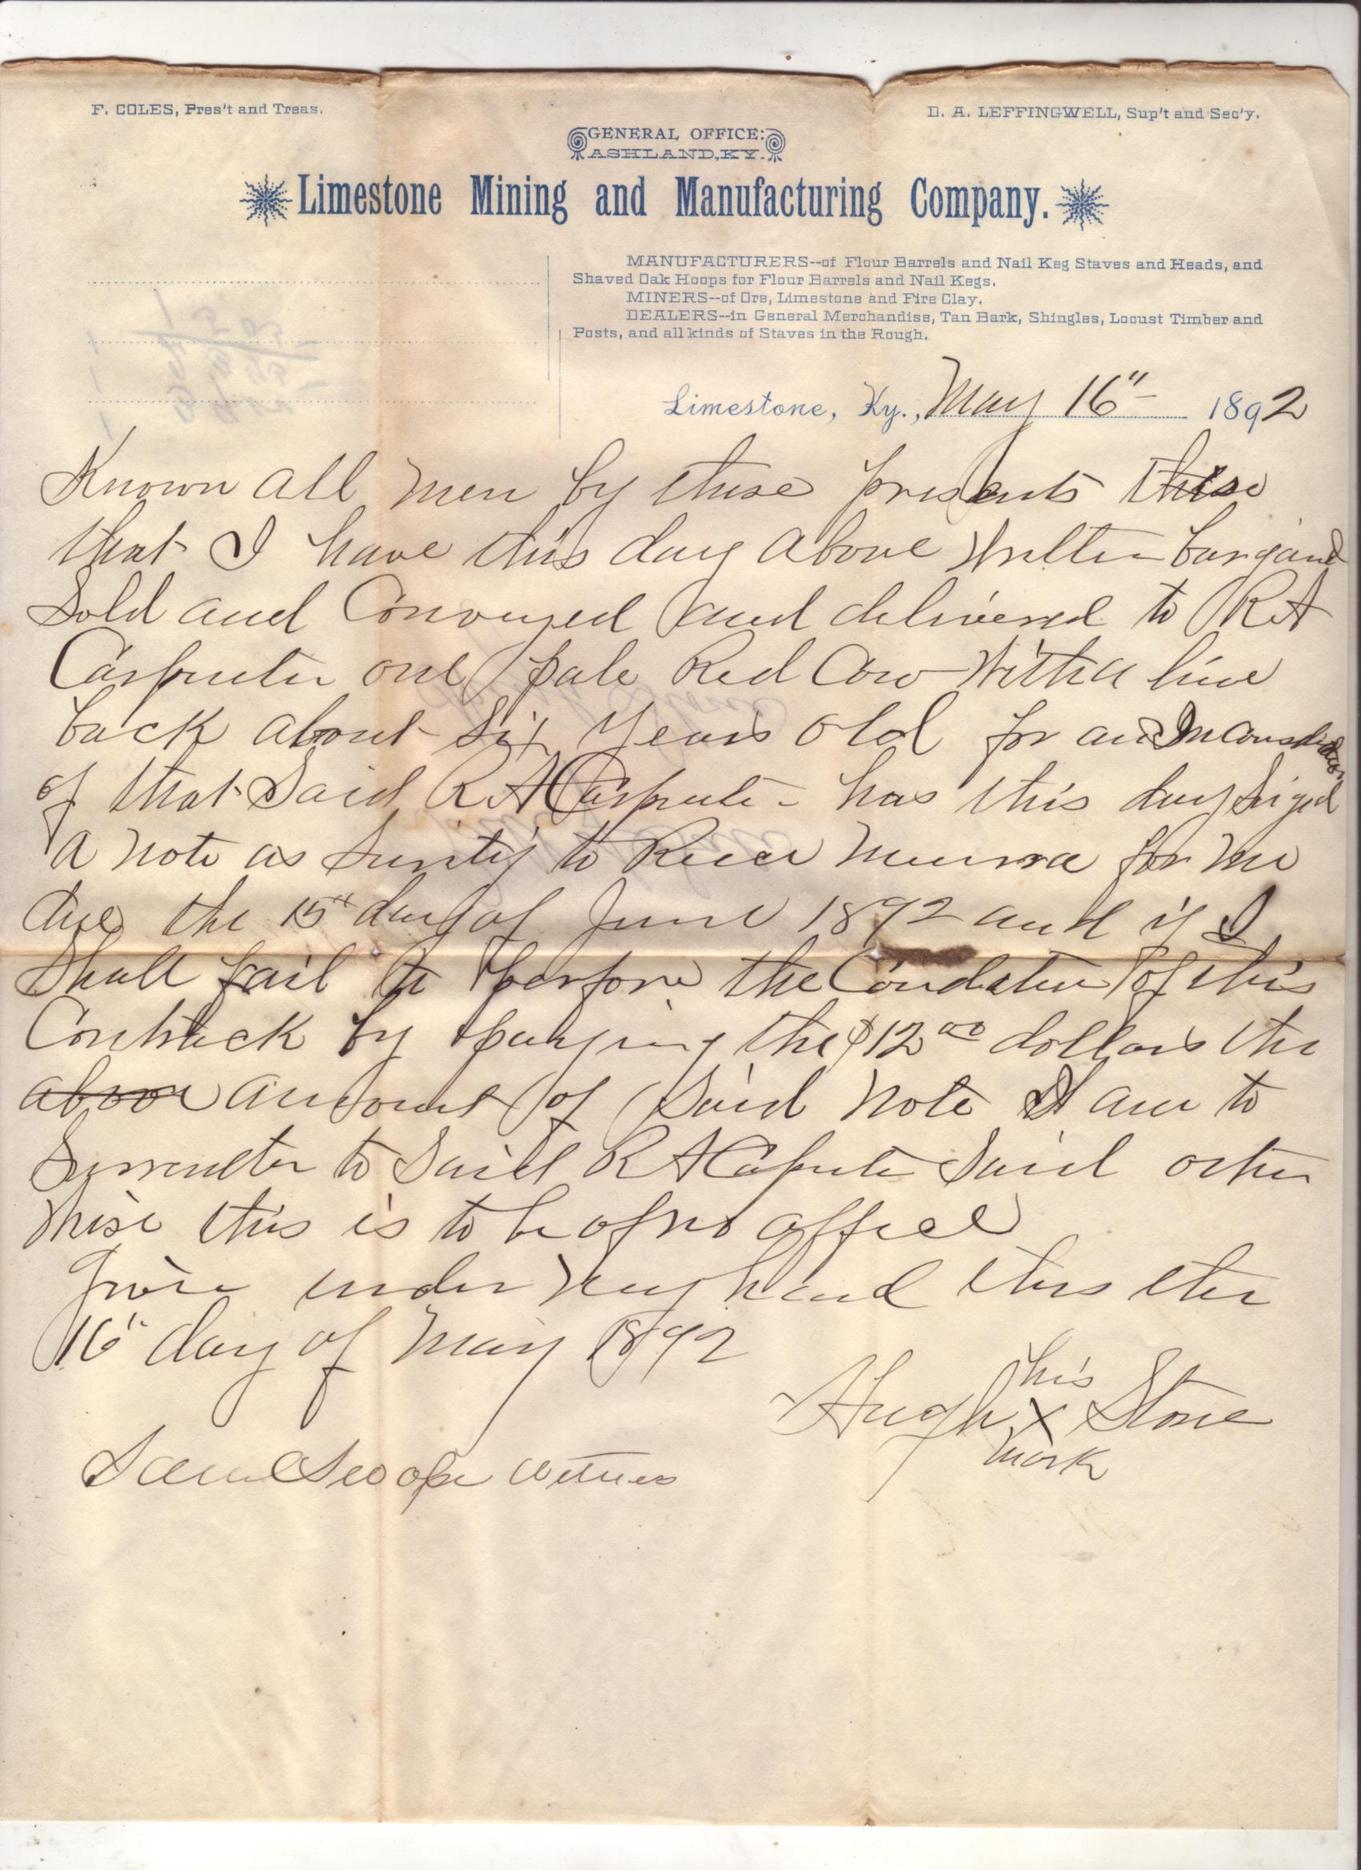 F. COLES, Pres't and Treas.
D. A. LEFFINGWELL, Sup't and Sec'y.
GENERAL OFFICE:
ASHLAND, KY.
Limestone Mining and Manufacturing Company.
MANUFACTURERS--of Flour Barrels and Nail Keg Staves and Heads, and
Shaved Oak Hoops for Flour Barrels and Nail Kegs.
MINERS--of Ore, Limestone and Fire Clay.
DEALERS--in General Merchandise, Tan Bark, Shingles, Locust Timber and
Posts, and all kinds of Staves in the Rough.
Limestone, Ky., May 16" 1892
Known all men by these presents
that I have this day above written bargand
Sold and Conveyed and delivered to R A
Carpenter one pale Red Cow with a line
back about Six years old for an In Consideration
of that Said R A Carpenter has this day Signed
a note as Surity to for me
due the 15th day of June 1892 and if I
Shall fail to perform the Condation of this
Contrack by paying the $12 00 dollars the
above amount of Said note I am to
Surrender to Said R A Carpenter Said other
wise this is to be of no effect
Given under my hand this the
16" day of May 1892
his
Hugh X Stone
mark
Swope witness